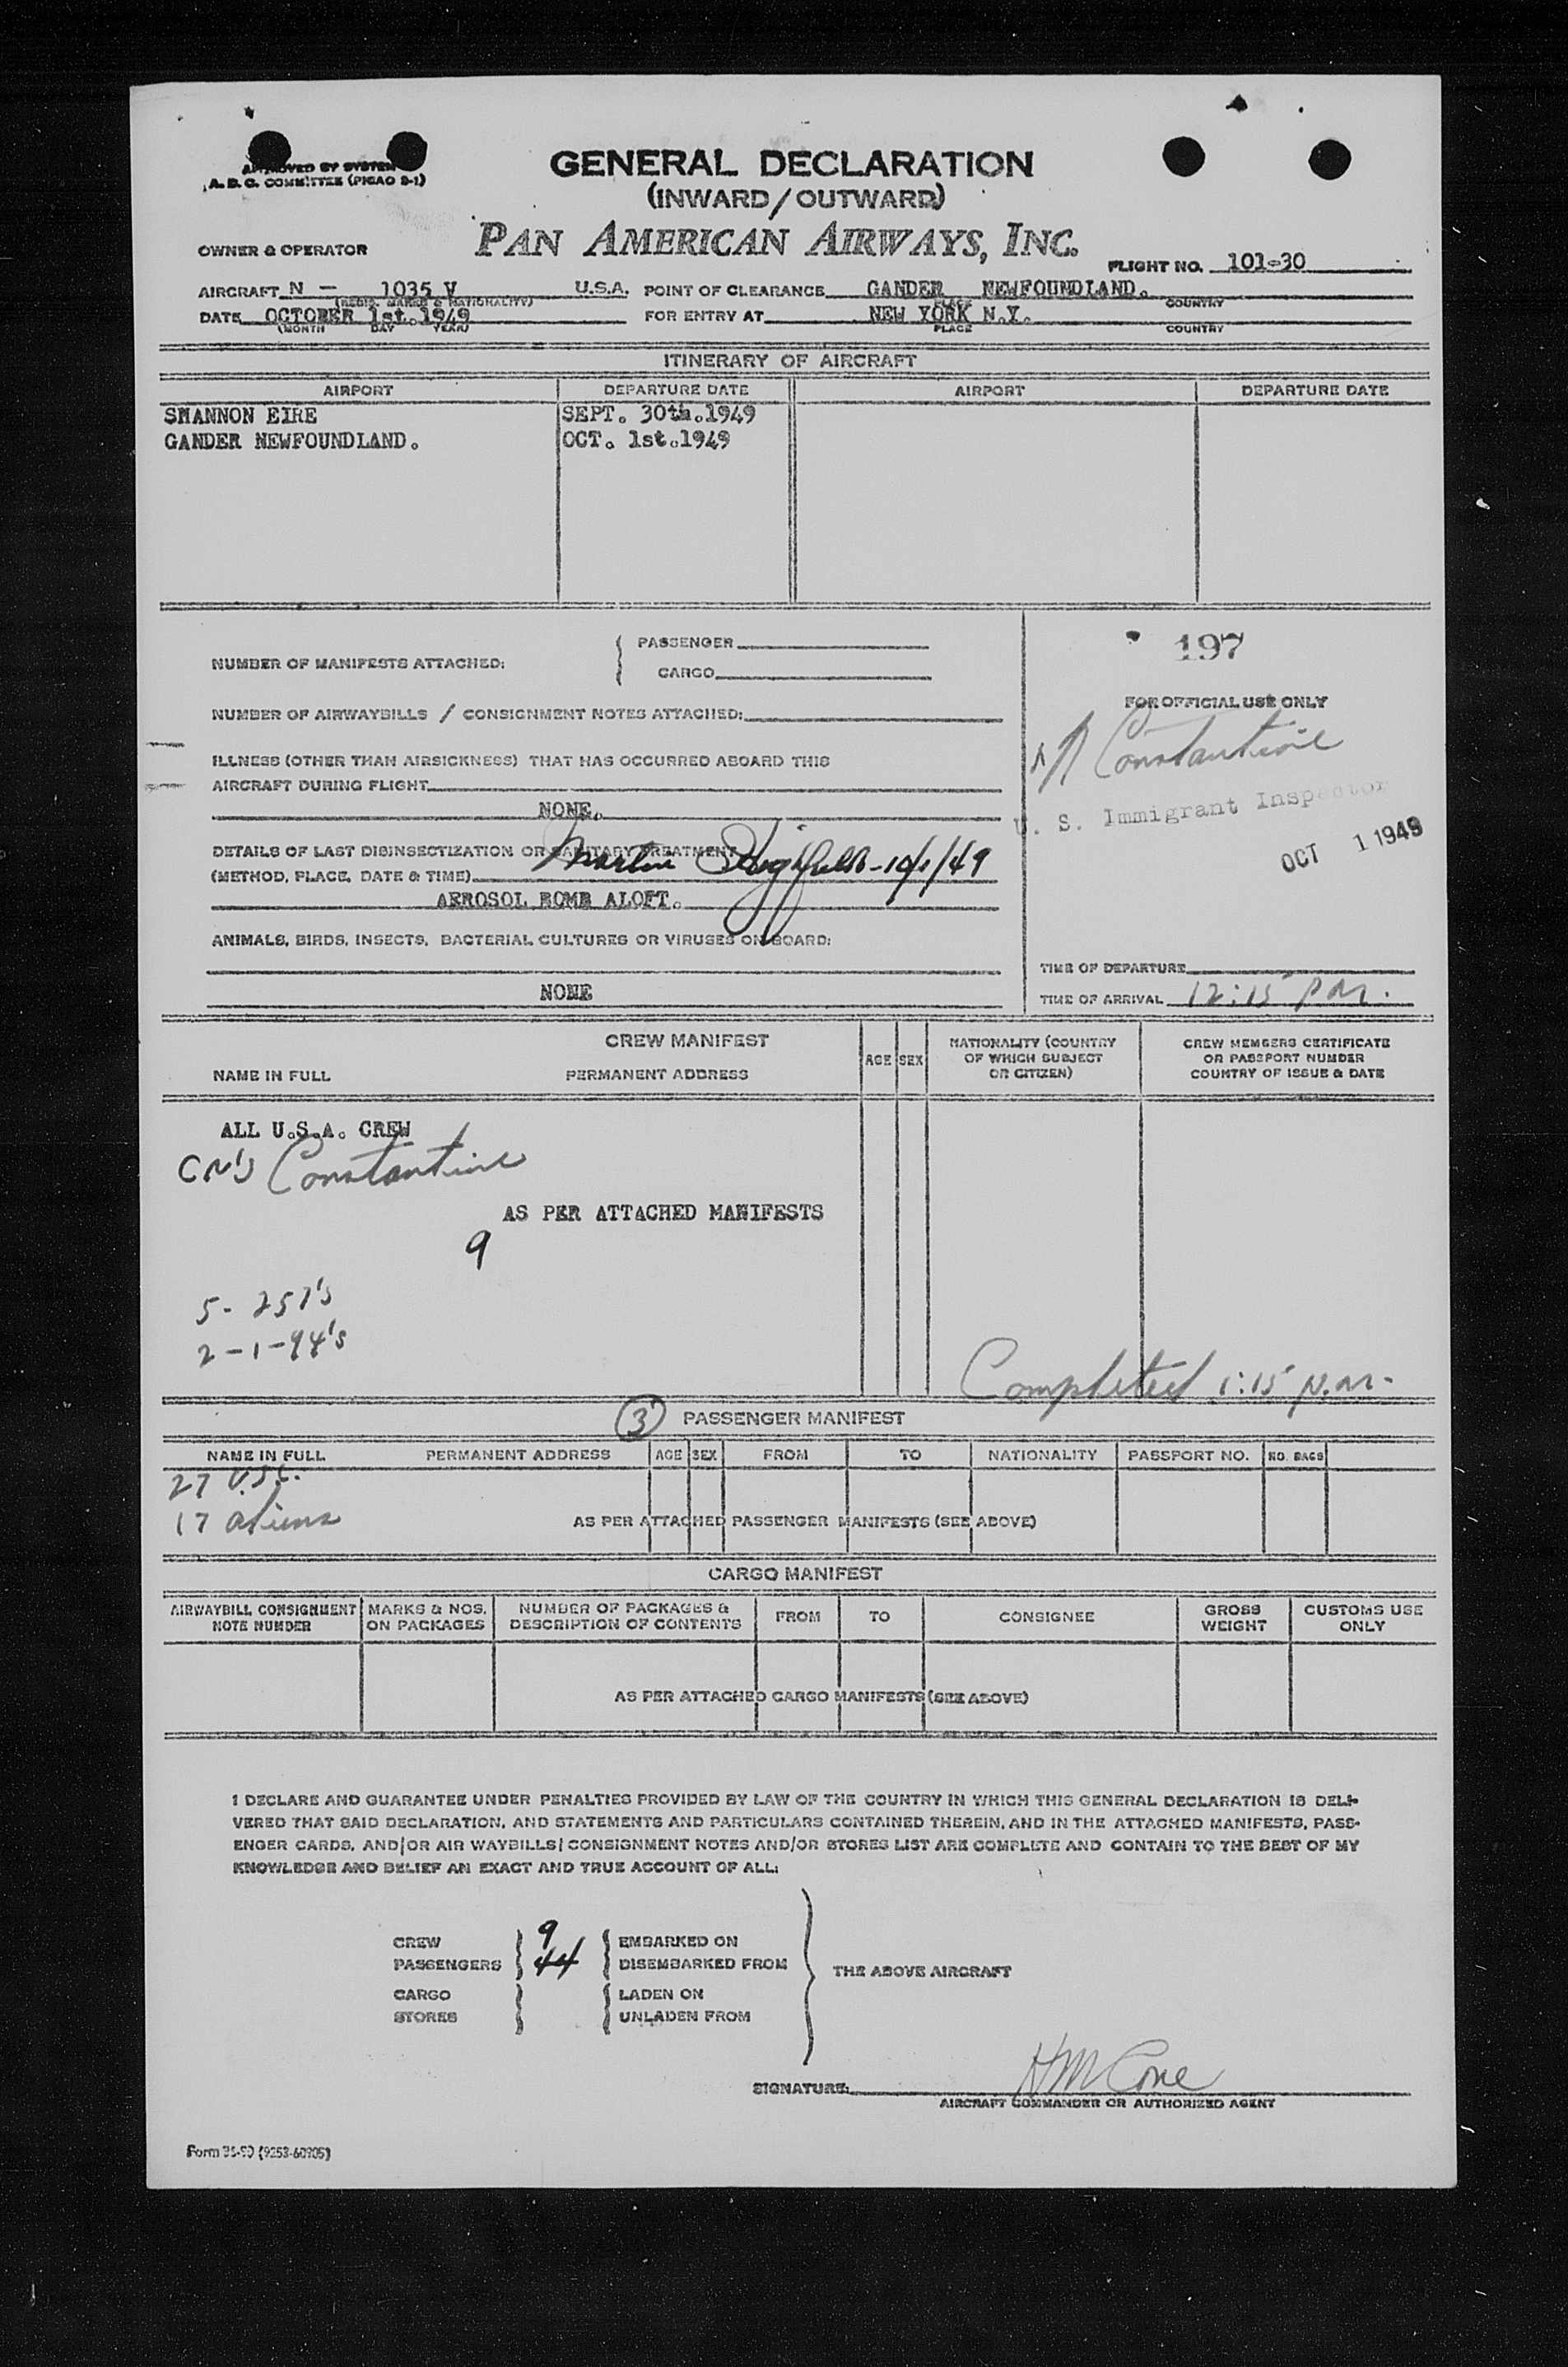 APPROVED BY SYSTEM
A. B. C. COMMITTEE (PICAO S-1)
GENERAL DECLARATION
(INWARD/OUTWARD)
OWNER & OPERATOR
PAN AMERICAN AIRWAYS, INC.
FLIGHT NO. 101-30
AIRCRAFT N - 1035 V U.S.A. POINT OF CLEARANCE GANDER NEWFOUNDLAND.
(REGIS. MARKS & NATIONALITY) PLACE COUNTRY
DATE OCTOBER 1st.1949 FOR ENTRY AT NEW YORK N.Y.
(MONTH DAY YEAR) PLACE COUNTRY
ITINERARY OF AIRCRAFT
AIRPORT DEPARTURE DATE AIRPORT DEPARTURE DATE
SHANNON EIRE SEPT. 30th.1949
GANDER NEWFOUNDLAND. OCT. 1st.1949
NUMBER OF MANIFESTS ATTACHED: PASSENGER
CARGO
NUMBER OF AIRWAYBILLS / CONSIGNMENT NOTES ATTACHED:
ILLNESS (OTHER THAN AIRSICKNESS) THAT HAS OCCURRED ABOARD THIS
AIRCRAFT DURING FLIGHT
NONE.
DETAILS OF LAST DISINSECTIZATION OR SANITARY TREATMENT
(METHOD, PLACE, DATE & TIME) Martin Highfield-10/1/49
AEROSOL BOMB ALOFT.
ANIMALS, BIRDS, INSECTS, BACTERIAL CULTURES OR VIRUSES ON BOARD:
NONE
197
FOR OFFICIAL USE ONLY
Constantine
U. S. Immigrant Inspector
OCT 1 1949
TIME OF DEPARTURE
TIME OF ARRIVAL 12:15 P.M.
CREW MANIFEST
NAME IN FULL PERMANENT ADDRESS AGE SEX
NATIONALITY (COUNTRY
OF WHICH SUBJECT
OR CITIZEN)
CREW MEMBERS CERTIFICATE
OR PASSPORT NUMBER
COUNTRY OF ISSUE & DATE
ALL U.S.A. CREW
Constantine
AS PER ATTACHED MANIFESTS
9
5- 257's
2-1-94's
Completed 1:15 p.m.
3 PASSENGER MANIFEST
NAME IN FULL PERMANENT ADDRESS AGE SEX FROM TO NATIONALITY PASSPORT NO. NO. BAGS
27 U.S.C.
17 aliens
AS PER ATTACHED PASSENGER MANIFESTS (SEE ABOVE)
CARGO MANIFEST
AIRWAYBILL CONSIGNMENT
NOTE NUMBER
MARKS & NOS.
ON PACKAGES
NUMBER OF PACKAGES &
DESCRIPTION OF CONTENTS
FROM TO CONSIGNEE
GROSS
WEIGHT
CUSTOMS USE
ONLY
AS PER ATTACHED CARGO MANIFESTS (SEE ABOVE)
I DECLARE AND GUARANTEE UNDER PENALTIES PROVIDED BY LAW OF THE COUNTRY IN WHICH THIS GENERAL DECLARATION IS DELI-
VERED THAT SAID DECLARATION, AND STATEMENTS AND PARTICULARS CONTAINED THEREIN, AND IN THE ATTACHED MANIFESTS, PASS-
ENGER CARDS, AND/OR AIR WAYBILLS/ CONSIGNMENT NOTES AND/OR STORES LIST ARE COMPLETE AND CONTAIN TO THE BEST OF MY
KNOWLEDGE AND BELIEF AN EXACT AND TRUE ACCOUNT OF ALL:
CREW 9 EMBARKED ON
PASSENGERS 44 DISEMBARKED FROM
THE ABOVE AIRCRAFT
CARGO LADEN ON
STORES UNLADEN FROM
SIGNATURE: HM Cone
AIRCRAFT COMMANDER OR AUTHORIZED AGENT